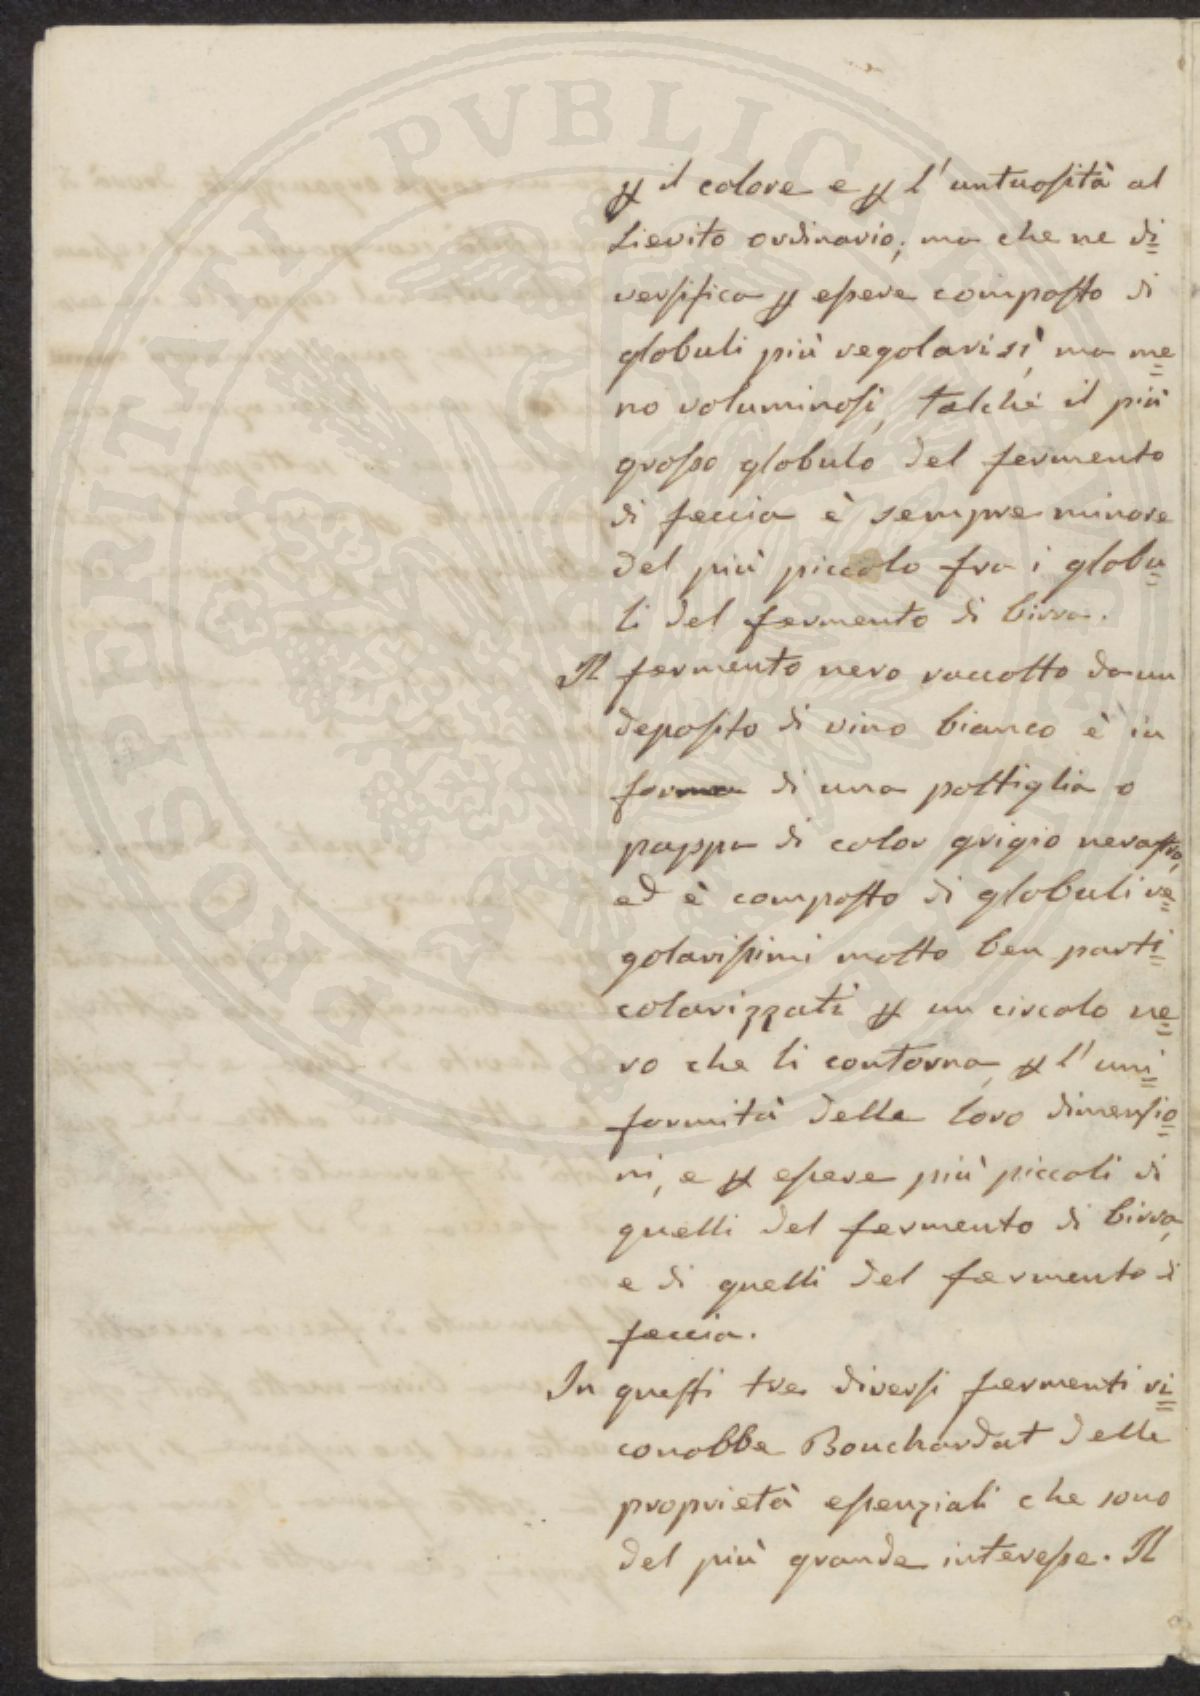 PROSPERITATI PVBLICAE AVGENDAE
ꝑ il colore e ꝑ l'untuosità al
Lievito ordinario; ma che ne di=
versifica ꝑ eſsere compoſto di
globuli più regolari sì, ma me=
no voluminoſi, talchè il più
groſso globulo del fermento
di feccia è sempre minore
del più piccolo fra i globu=
li del fermento di birra.
Il fermento nero raccolto da un
depoſito di vino bianco è in
forma di una poltiglia o
pappa di color grigio neraſtro,
ed è compoſto di globuli re=
golariſsimi molto ben parti=
colarizzati ꝑ un circolo ne=
ro che li contorna, ꝑ l'uni=
formità delle loro dimenſio=
ni, e ꝑ eſsere più piccoli di
quelli del fermento di birra,
e di quelli del fermento di
feccia.
In queſti tre diverſi fermenti ri=
conobbe Bouchardat delle
proprietà eſsenziali che sono
del più grande intereſse. Il